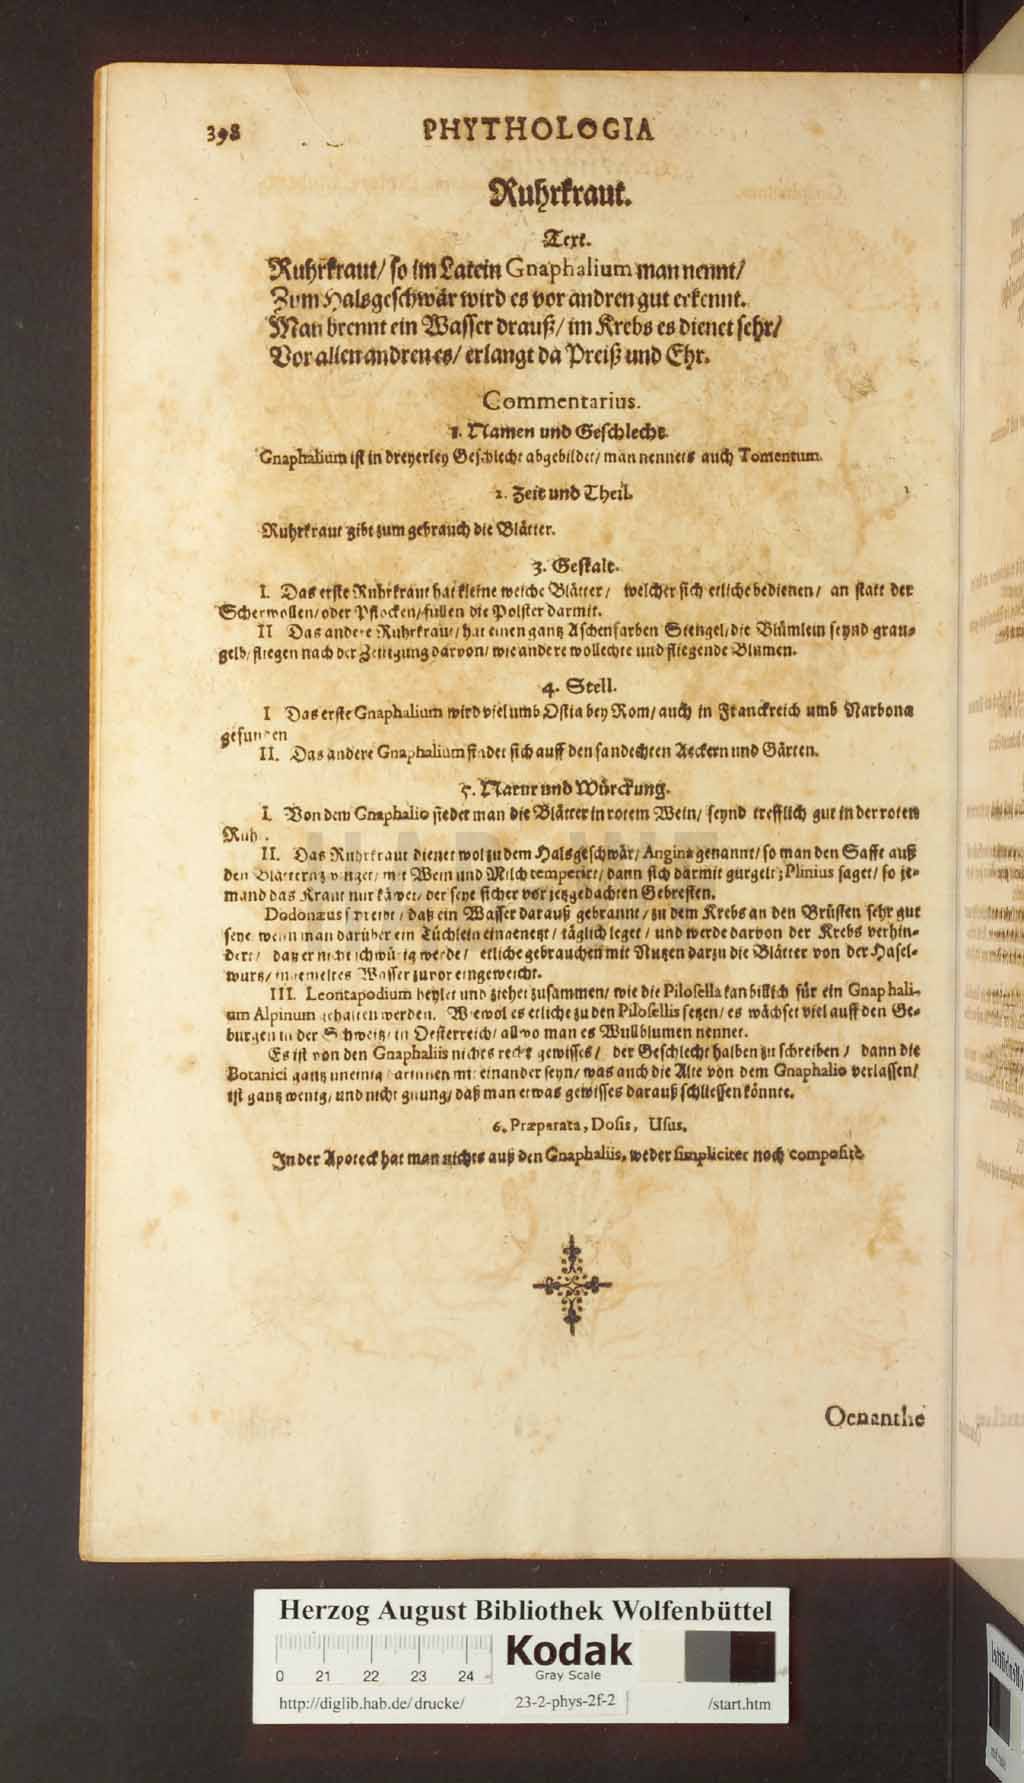 398 PHYTHOLOGIA
Ruhrkraut.
Text.
Ruhrkraut/ so im Latein Gnaphalium man nennt/
Zum Halsgeschwär wird es vor andren gut erkennt.
Man brennt ein Wasser drauß/ im Krebs es dienet sehr/
Vor allen andren es/ erlangt da Preiß und Ehr.
Commentarius.
1. Namen und Geschlecht.
Gnaphalium ist in dreyerley Geschlecht abgebildet/ man nennets auch Tomentum.
2. Zeit und Theil.
Ruhrkraut gibt zum gebrauch die Blätter.
3. Gestalt.
I. Das erste Ruhrkraut hat kleine weiche Blätter/ welcher sich etliche bedienen/ an statt der
Scherwollen/ oder Pflocken/ füllen die Polster darmit.
II Das andere Ruhrkraut/ hat einen gantz Aschenfarben Stengel/ die Blümlein seynd grau-
gelb/ fliegen nach der Zeitigung darvon/ wie andere wollechte und fliegende Blumen.
4. Stell.
I Das erste Gnaphalium wird viel umb Ostia bey Rom/ auch in Franckreich umb Narbona
gefunden
II. Das andere Gnaphalium findet sich auff den sandechten Aeckern und Gärten.
5. Natur und Würckung.
I. Von dem Gnaphalio siedet man die Blätter in rotem Wein/ seynd trefflich gut in der roten
Ruhr.
II. Das Ruhrkraut dienet wol zu dem Halsgeschwär/ Angina genannt/ so man den Safft auß
den Blättern mit Wein und Milch temperiert/ dann sich darmit gurgelt; Plinius saget/ so je-
mand das Kraut nur käwet/ der seye sicher vor jetzgedachten Gebresten.
Dodonæus schreibt/ daß ein Wasser darauß gebrannt/ zu dem Krebs an den Brüsten sehr gut
seye/ wenn man darüber ein Tüchlein eingenetzt/ täglich leget/ und werde darvon der Krebs verhin-
dert/ daß er nicht schwürig werde/ etliche gebrauchen mit Nutzen darzu die Blätter von der Hasel-
wurtz/ in gemeltes Wasser zuvor eingeweicht.
III. Leontapodium heylet und ziehet zusammen/ wie die Pilosella kan billich für ein Gnaphali-
um Alpinum gehalten werden. Wiewol es etliche zu den Pilosellis setzen/ es wächset viel auff den Ge-
bürgen in der Schweitz/ in Oesterreich/ allwo man es Wullblumen nennet.
Es ist von den Gnaphaliis nichts recht gewisses/ der Geschlecht halben zu schreiben/ dann die
Botanici gantz uneinig darinnen mit einander seyn/ was auch die Alte von dem Gnaphalio verlassen/
ist gantz wenig/ und nicht gnung/ daß man etwas gewisses darauß schliessen könnte.
6. Præparata, Dosis, Usus.
In der Apoteck hat man nichts auß den Gnaphaliis, weder simpliciter noch compositè
Oenanthe
Herzog August Bibliothek Wolfenbüttel
Kodak
Gray Scale
0 21 22 23 24
http://diglib.hab.de/drucke/ 23-2-phys-2f-2 /start.htm